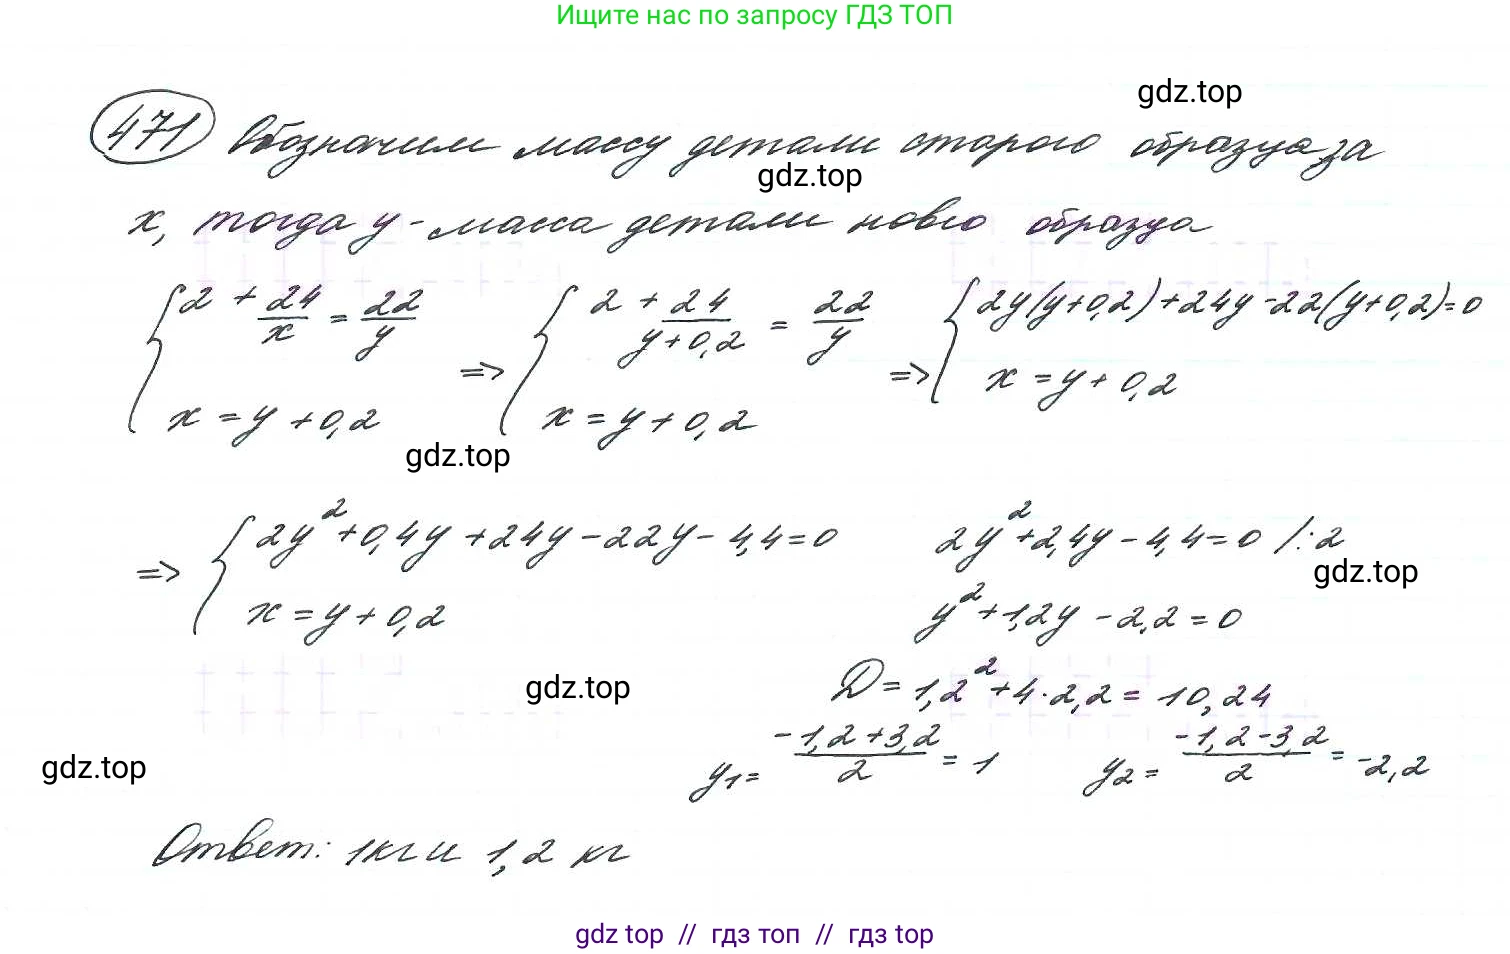 Ищите нас по запросу ГДЗ ТОП
gdz.top
471 Обозначим массу детали старого образца за
gdz.top
x, тогда y - масса детали новго образца
{ 2 + 24/x = 22/y => { 2 + 24/(y+0,2) = 22/y => { 2y(y+0,2)+24y-22(y+0,2)=0
x = y + 0,2 x = y + 0,2 x = y + 0,2
gdz.top
=> { 2y²+0,4y+24y-22y-4,4=0 2y²+2,4y-4,4=0 /:2
gdz.top
x = y + 0,2 y²+1,2y-2,2=0
gdz.top
D = 1,2²+4·2,2 = 10,24
gdz.top
y1 = (-1,2+3,2)/2 = 1 y2 = (-1,2-3,2)/2 = -2,2
Ответ: 1кг и 1,2 кг
gdz top // гдз топ // гдз top